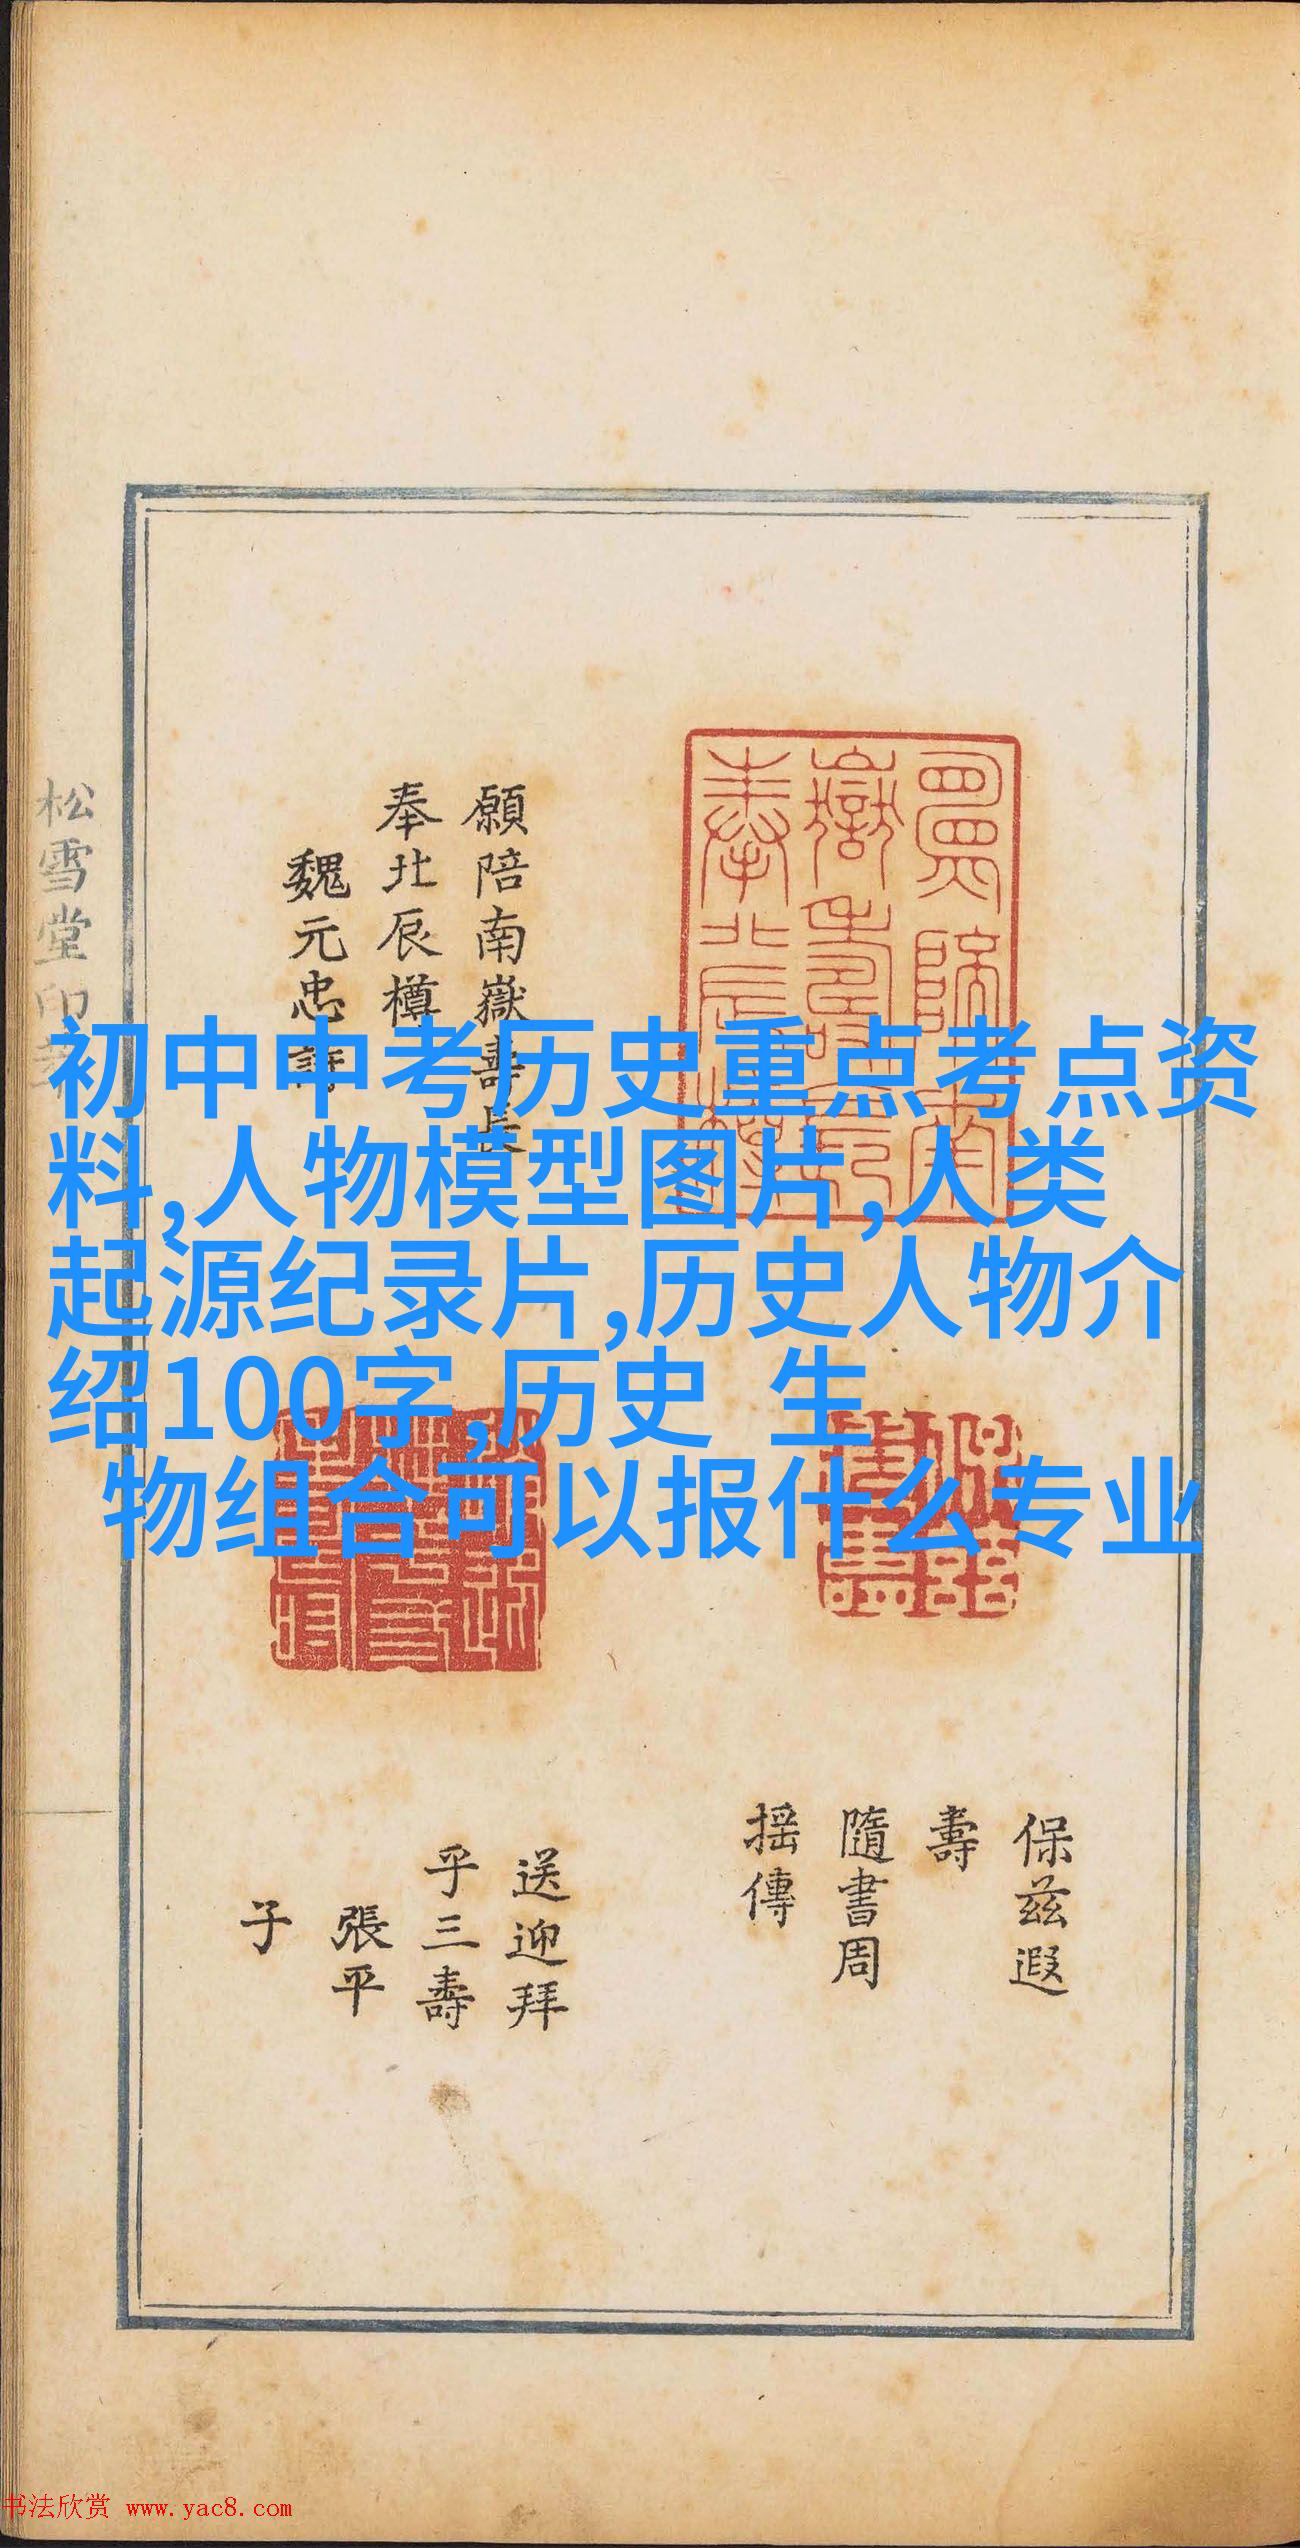 松雪堂印
願陪南嶽壽長
奉北辰樽
魏元忠詩
初中中考历史重点考点资
料,人物模型图片,人类
起源纪录片,历史人物介
绍100字,历史 生
物组合可以报什么专业
保茲遐
壽
隨書周
搖傳
送迎拜
乎三壽
張平
子
书法欣赏 www.yac8.com